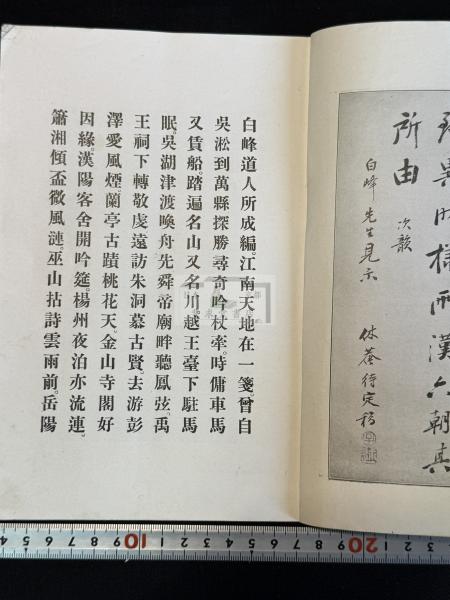 異時樣西漢六朝真
所由
次韻
白峰先生見示
休菴待定稿
白峰道人所成編。江南天地在一箋。曾自
吳淞到萬縣探勝尋奇吟杖牽。時傭車馬
又賃船。踏遍名山又名川。越王臺下駐馬
眠。吳湖津渡喚舟先舜帝廟畔聽鳳弦。禹
王祠下轉敬虔遠訪朱洞慕古賢。去游彭
澤愛風煙。蘭亭古蹟桃花天。金山寺閣好
因緣。漢陽客舍開吟筵。楊州夜泊亦流連。
簫湘傾盃微風漣。巫山拈詩雲雨前。岳陽